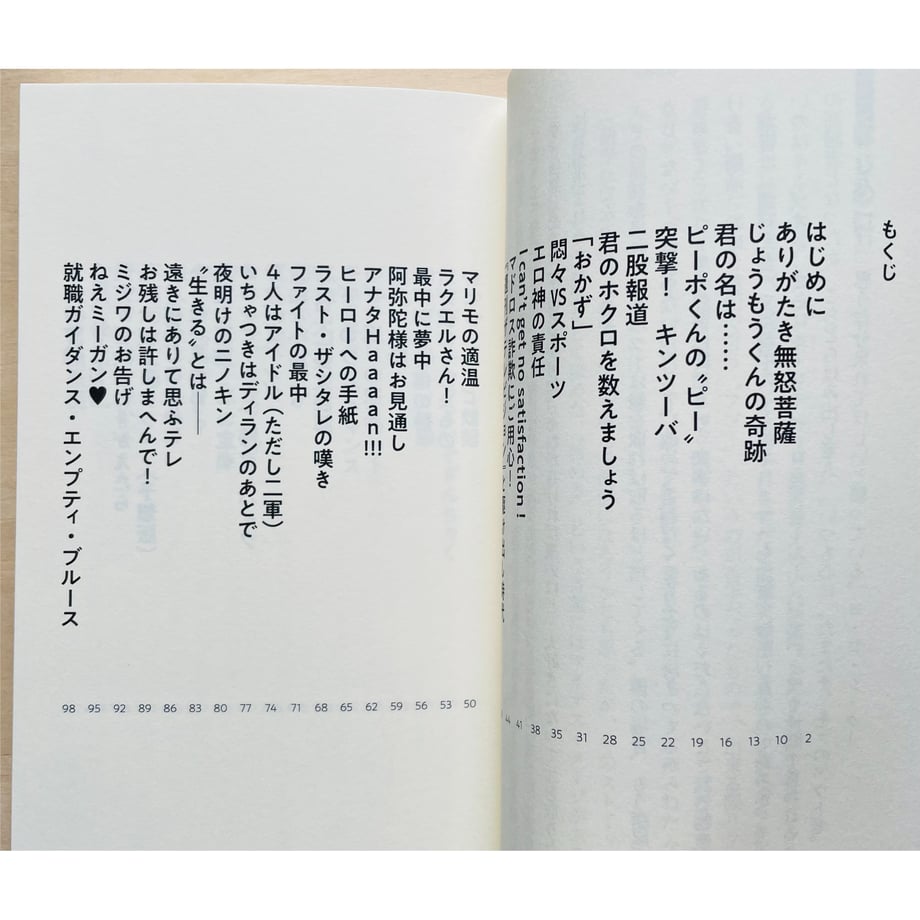 もくじ
はじめに 2
ありがたき無怒菩薩 10
じょうもうくんの奇跡 13
君の名は…… 16
ピーポくんの〝ピー〟 19
突撃！　キンツーバ 22
二股報道 25
君のホクロを数えましょう 28
「おかず」 31
悶々VSスポーツ 35
エロ神の責任 38
I can't get no satisfaction! 41
マドロス詐欺にご用心！ 44
マリモの適温 50
ラクエルさん！ 53
最中に夢中 56
阿弥陀様はお見通し 59
アナタHaaaan!!! 62
ヒーローへの手紙 65
ラスト・ザシタレの嘆き 68
ファイトの最中 71
4人はアイドル（ただし二軍） 74
いちゃつきはディランのあとで 77
夜明けのニノキン 80
〝生きる〟とは―― 83
遠きにありて思ふテレ 86
お残しは許しまへんで！ 89
ミジワのお告げ 92
ねえミーガン♥ 95
就職ガイダンス・エンプティ・ブルース 98